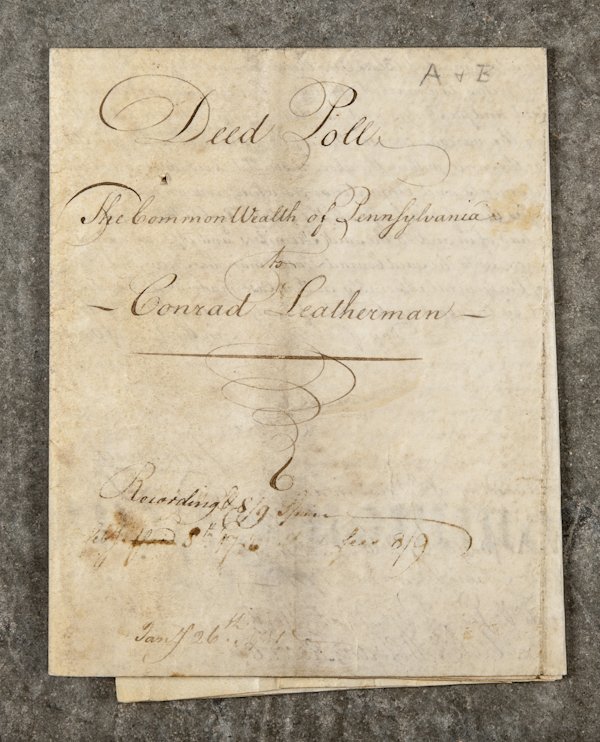 A + B
Deed Poll
The CommonWealth of Pennsylvania
to
- Conrad Leatherman -
Recording 8/9
8th 8/9
26th